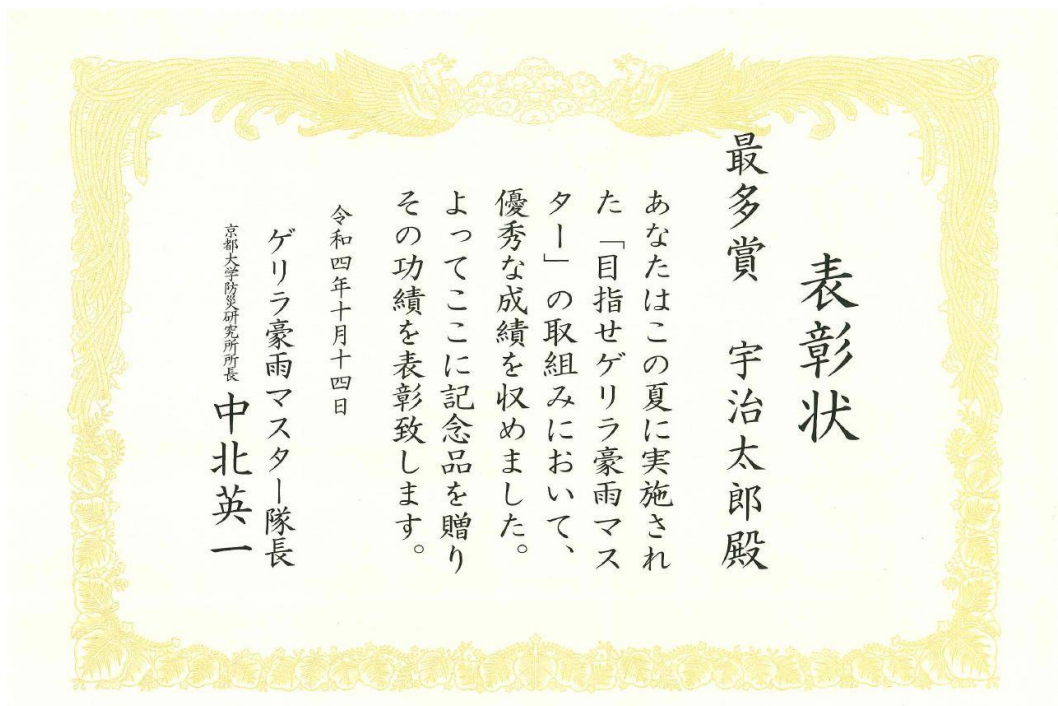 表彰状
最多賞　宇治太郎殿
あなたはこの夏に実施され
た「目指せゲリラ豪雨マス
ター」の取組みにおいて、
優秀な成績を収めました。
よってここに記念品を贈り
その功績を表彰致します。
令和四年十月十四日
ゲリラ豪雨マスター隊長
京都大学防災研究所所長　中北英一